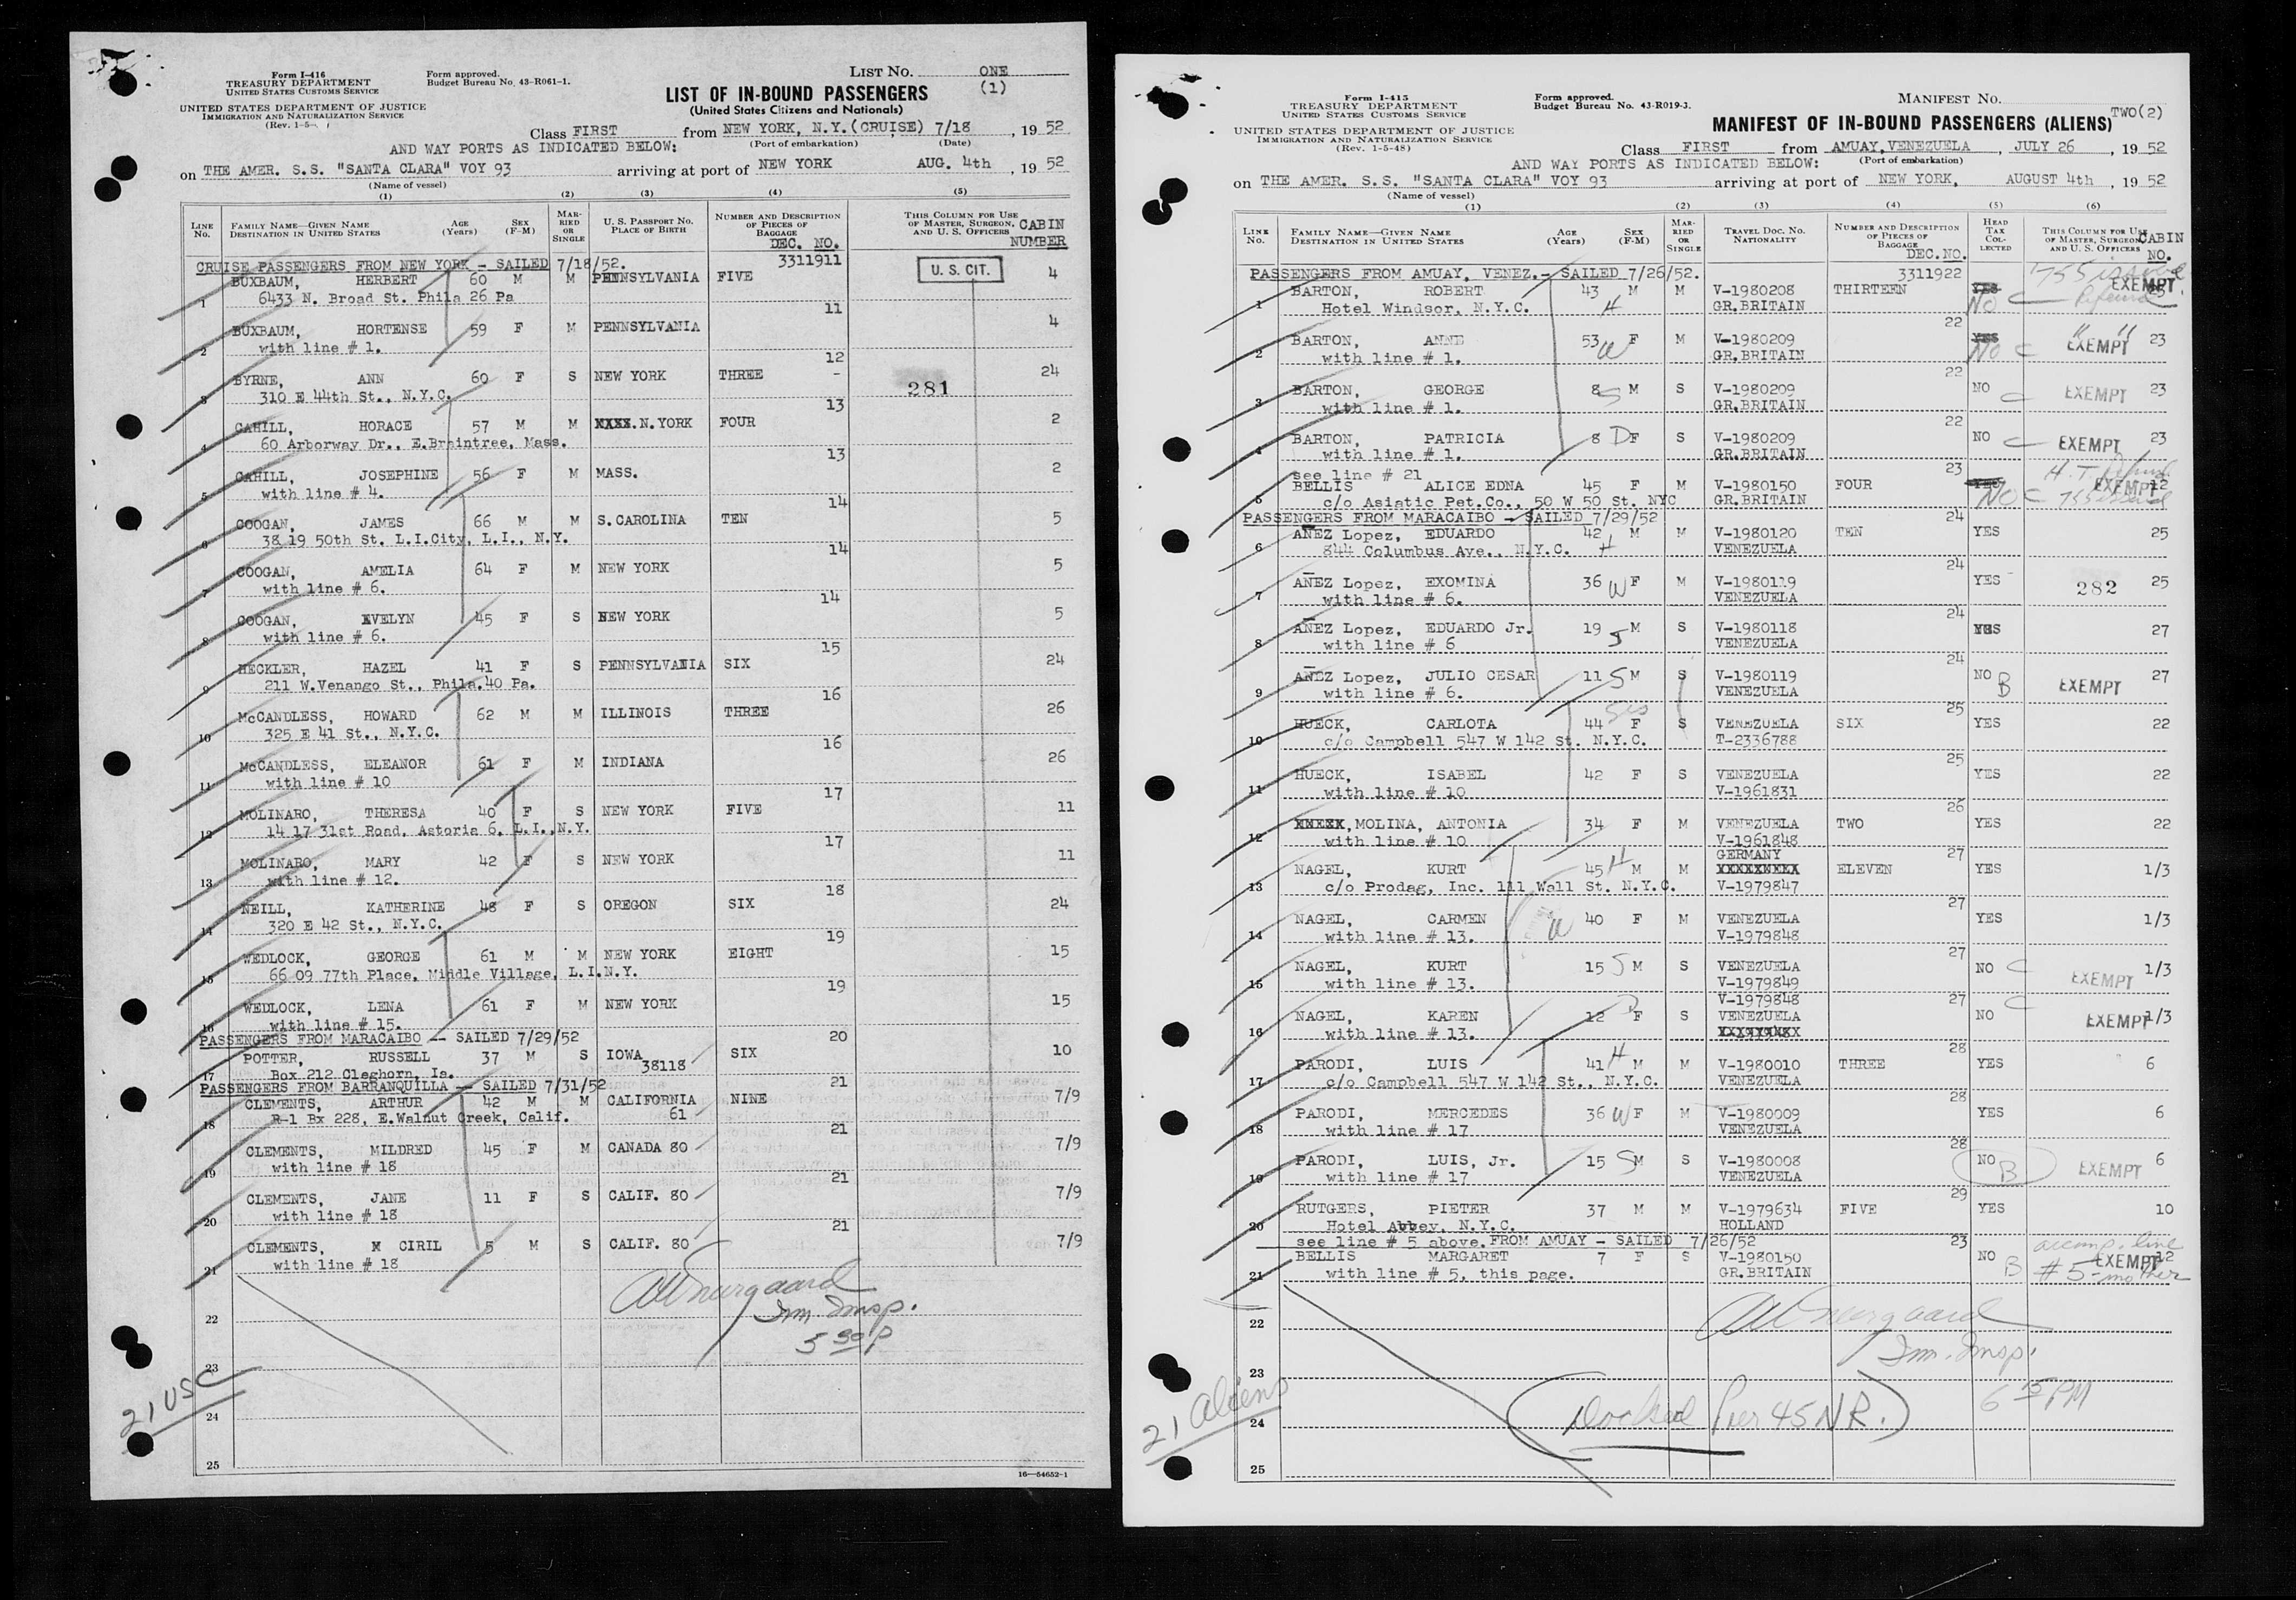 Form I-416
TREASURY DEPARTMENT
UNITED STATES CUSTOMS SERVICE
UNITED STATES DEPARTMENT OF JUSTICE
IMMIGRATION AND NATURALIZATION SERVICE
Form approved.
Budget Bureau No. 43-R061-1.
LIST No. ONE
(1)
LIST OF IN-BOUND PASSENGERS
(United States Citizens and Nationals)
Class FIRST from NEW YORK, N.Y.(CRUISE) 7/18, 1952
(Port of embarkation) (Date)
AND WAY PORTS AS INDICATED BELOW:
on THE AMER. S.S. "SANTA CLARA" VOY 93 arriving at port of NEW YORK AUG. 4th, 1952
(Name of vessel)
(1) (2) (3) (4) (5)
LINE No. FAMILY NAME—GIVEN NAME DESTINATION IN UNITED STATES AGE (Years) SEX (F-M) MARRIED OR SINGLE U. S. PASSPORT No. PLACE OF BIRTH NUMBER AND DESCRIPTION OF PIECES OF BAGGAGE DEC. NO. THIS COLUMN FOR USE OF MASTER, SURGEON, AND U. S. OFFICERS CABIN NUMBER
CRUISE PASSENGERS FROM NEW YORK - SAILED 7/18/52. 3311911 U. S. CIT.
1 BUXBAUM, HERBERT 60 M M PENNSYLVANIA FIVE 4
6433 N. Broad St. Phila 26 Pa
11
2 BUXBAUM, HORTENSE 59 F M PENNSYLVANIA 4
with line # 1.
12
3 BYRNE, ANN 60 F S NEW YORK THREE - 24
310 E 44th St., N.Y.C. 281
13
4 CAHILL, HORACE 57 M M XXXX.N.YORK FOUR 2
60 Arborway Dr., E.Braintree, Mass.
13
5 CAHILL, JOSEPHINE 56 F M MASS. 2
with line # 4.
14
6 COOGAN, JAMES 66 M M S.CAROLINA TEN 5
38 19 50th St. L.I.City, L.I., N.Y.
14
7 COOGAN, AMELIA 64 F M NEW YORK 5
with line # 6.
14
8 COOGAN, EVELYN 45 F S NEW YORK 5
with line # 6.
15
9 HECKLER, HAZEL 41 F S PENNSYLVANIA SIX 24
211 W.Venango St., Phila.40 Pa.
16
10 McCANDLESS, HOWARD 62 M M ILLINOIS THREE 26
325 E 41 St., N.Y.C.
16
11 McCANDLESS, ELEANOR 61 F M INDIANA 26
with line # 10
17
12 MOLINARO, THERESA 40 F S NEW YORK FIVE 11
14 17 31st Road, Astoria 6, L.I.,N.Y.
17
13 MOLINARO, MARY 42 F S NEW YORK 11
with line # 12.
18
14 NEILL, KATHERINE 48 F S OREGON SIX 24
320 E 42 St., N.Y.C.
19
15 WEDLOCK, GEORGE 61 M M NEW YORK EIGHT 15
66 09 77th Place, Middle Village, L.I.N.Y.
19
16 WEDLOCK, LENA 61 F M NEW YORK 15
with line # 15.
PASSENGERS FROM MARACAIBO -- SAILED 7/29/52 20
17 POTTER, RUSSELL 37 M S IOWA 38118 SIX 10
Box 212 Cleghorn, Ia.
PASSENGERS FROM BARRANQUILLA -- SAILED 7/31/52 21
18 CLEMENTS, ARTHUR 42 M M CALIFORNIA NINE 7/9
R-1 Bx 228, E.Walnut Creek, Calif. 61
21
19 CLEMENTS, MILDRED 45 F M CANADA 80 7/9
with line # 18
21
20 CLEMENTS, JANE 11 F S CALIF. 80 7/9
with line # 18
21
21 CLEMENTS, M CIRIL 5 M S CALIF. 80 7/9
with line # 18
22
Imm. Insp.
5 30 P
23
21 USC
24
25
16—54652-1
Form I-415
TREASURY DEPARTMENT
UNITED STATES CUSTOMS SERVICE
UNITED STATES DEPARTMENT OF JUSTICE
IMMIGRATION AND NATURALIZATION SERVICE
(Rev. 1-5-48)
Form approved.
Budget Bureau No. 43-R019-3.
MANIFEST No. TWO(2)
MANIFEST OF IN-BOUND PASSENGERS (ALIENS)
Class FIRST from AMUAY, VENEZUELA, JULY 26, 1952
AND WAY PORTS AS INDICATED BELOW: (Port of embarkation)
on THE AMER. S.S. "SANTA CLARA" VOY 93 arriving at port of NEW YORK, AUGUST 4th, 1952
(Name of vessel)
(1) (2) (3) (4) (5) (6)
LINE No. FAMILY NAME—GIVEN NAME DESTINATION IN UNITED STATES AGE (Years) SEX (F-M) MARRIED OR SINGLE TRAVEL DOC. NO. NATIONALITY NUMBER AND DESCRIPTION OF PIECES OF BAGGAGE DEC.NO. HEAD TAX COLLECTED THIS COLUMN FOR USE OF MASTER, SURGEON, AND U. S. OFFICERS CABIN NO.
PASSENGERS FROM AMUAY, VENEZ.- SAILED 7/26/52. 3311922
1 BARTON, ROBERT 43 M M V-1980208 THIRTEEN YES No C EXEMPT
Hotel Windsor, N.Y.C. H GR.BRITAIN
22
2 BARTON, ANNE 53 W F M V-1980209 YES No C EXEMPT 23
with line # 1. GR.BRITAIN
22
3 BARTON, GEORGE 8 S M S V-1980209 NO C EXEMPT 23
with line # 1. GR.BRITAIN
22
4 BARTON, PATRICIA 8 D F S V-1980209 NO C EXEMPT 23
with line # 1. GR.BRITAIN
see line # 21 23
5 BELLIS ALICE EDNA 45 F M V-1980150 FOUR YES NO C EXEMPT 12
c/o Asiatic Pet.Co., 50 W 50 St. NYC GR.BRITAIN
PASSENGERS FROM MARACAIBO - SAILED 7/29/52 24
6 AÑEZ Lopez, EDUARDO 42 M M V-1980120 TEN YES 25
844 Columbus Ave., N.Y.C. H VENEZUELA
24
7 AÑEZ Lopez, EXOMINA 36 W F M V-1980119 YES 282 25
with line # 6. VENEZUELA
24
8 AÑEZ Lopez, EDUARDO Jr. 19 S M S V-1980118 YES 27
with line # 6 VENEZUELA
24
9 AÑEZ Lopez, JULIO CESAR 11 S M S V-1980119 NO B EXEMPT 27
with line # 6. VENEZUELA
25
10 HUECK, CARLOTA 44 Sis F S VENEZUELA SIX YES 22
c/o Campbell 547 W 142 St. N.Y.C. T-2336788
25
11 HUECK, ISABEL 42 F S VENEZUELA YES 22
with line # 10 V-1961831
26
12 XXXXX, MOLINA, ANTONIA 34 F M VENEZUELA TWO YES 22
with line # 10 V-1961848
GERMANY 27
13 NAGEL, KURT 45 H M M XXXXXXXXX ELEVEN YES 1/3
c/o Prodag, Inc. 111 Wall St. N.Y.C. V-1979847
27
14 NAGEL, CARMEN W 40 F M VENEZUELA YES 1/3
with line # 13. V-1979848
27
15 NAGEL, KURT 15 S M S VENEZUELA NO C EXEMPT 1/3
with line # 13. V-1979849
V-1979848 27
16 NAGEL, KAREN 12 D F S VENEZUELA NO C EXEMPT 1/3
with line # 13. XXXXXXXXX
28
17 PARODI, LUIS 41 H M M V-1980010 THREE YES 6
c/o Campbell 547 W 142 St., N.Y.C. VENEZUELA
28
18 PARODI, MERCEDES 36 W F M V-1980009 YES 6
with line # 17 VENEZUELA
28
19 PARODI, LUIS, Jr. 15 S M S V-1980008 NO B EXEMPT 6
with line # 17 VENEZUELA
29
20 RUTGERS, PIETER 37 M M V-1979634 FIVE YES 10
Hotel Abbey, N.Y.C. HOLLAND
see line # 5 above. FROM AMUAY - SAILED 7/26/52 23 accomp. line
21 BELLIS MARGARET 7 F S V-1980150 NO B EXEMPT 12
with line # 5, this page. GR.BRITAIN # 5 - mother
22
Imm. Insp.
23
6 15 PM
21 aliens
24 (Docked Pier 45 N R.)
25